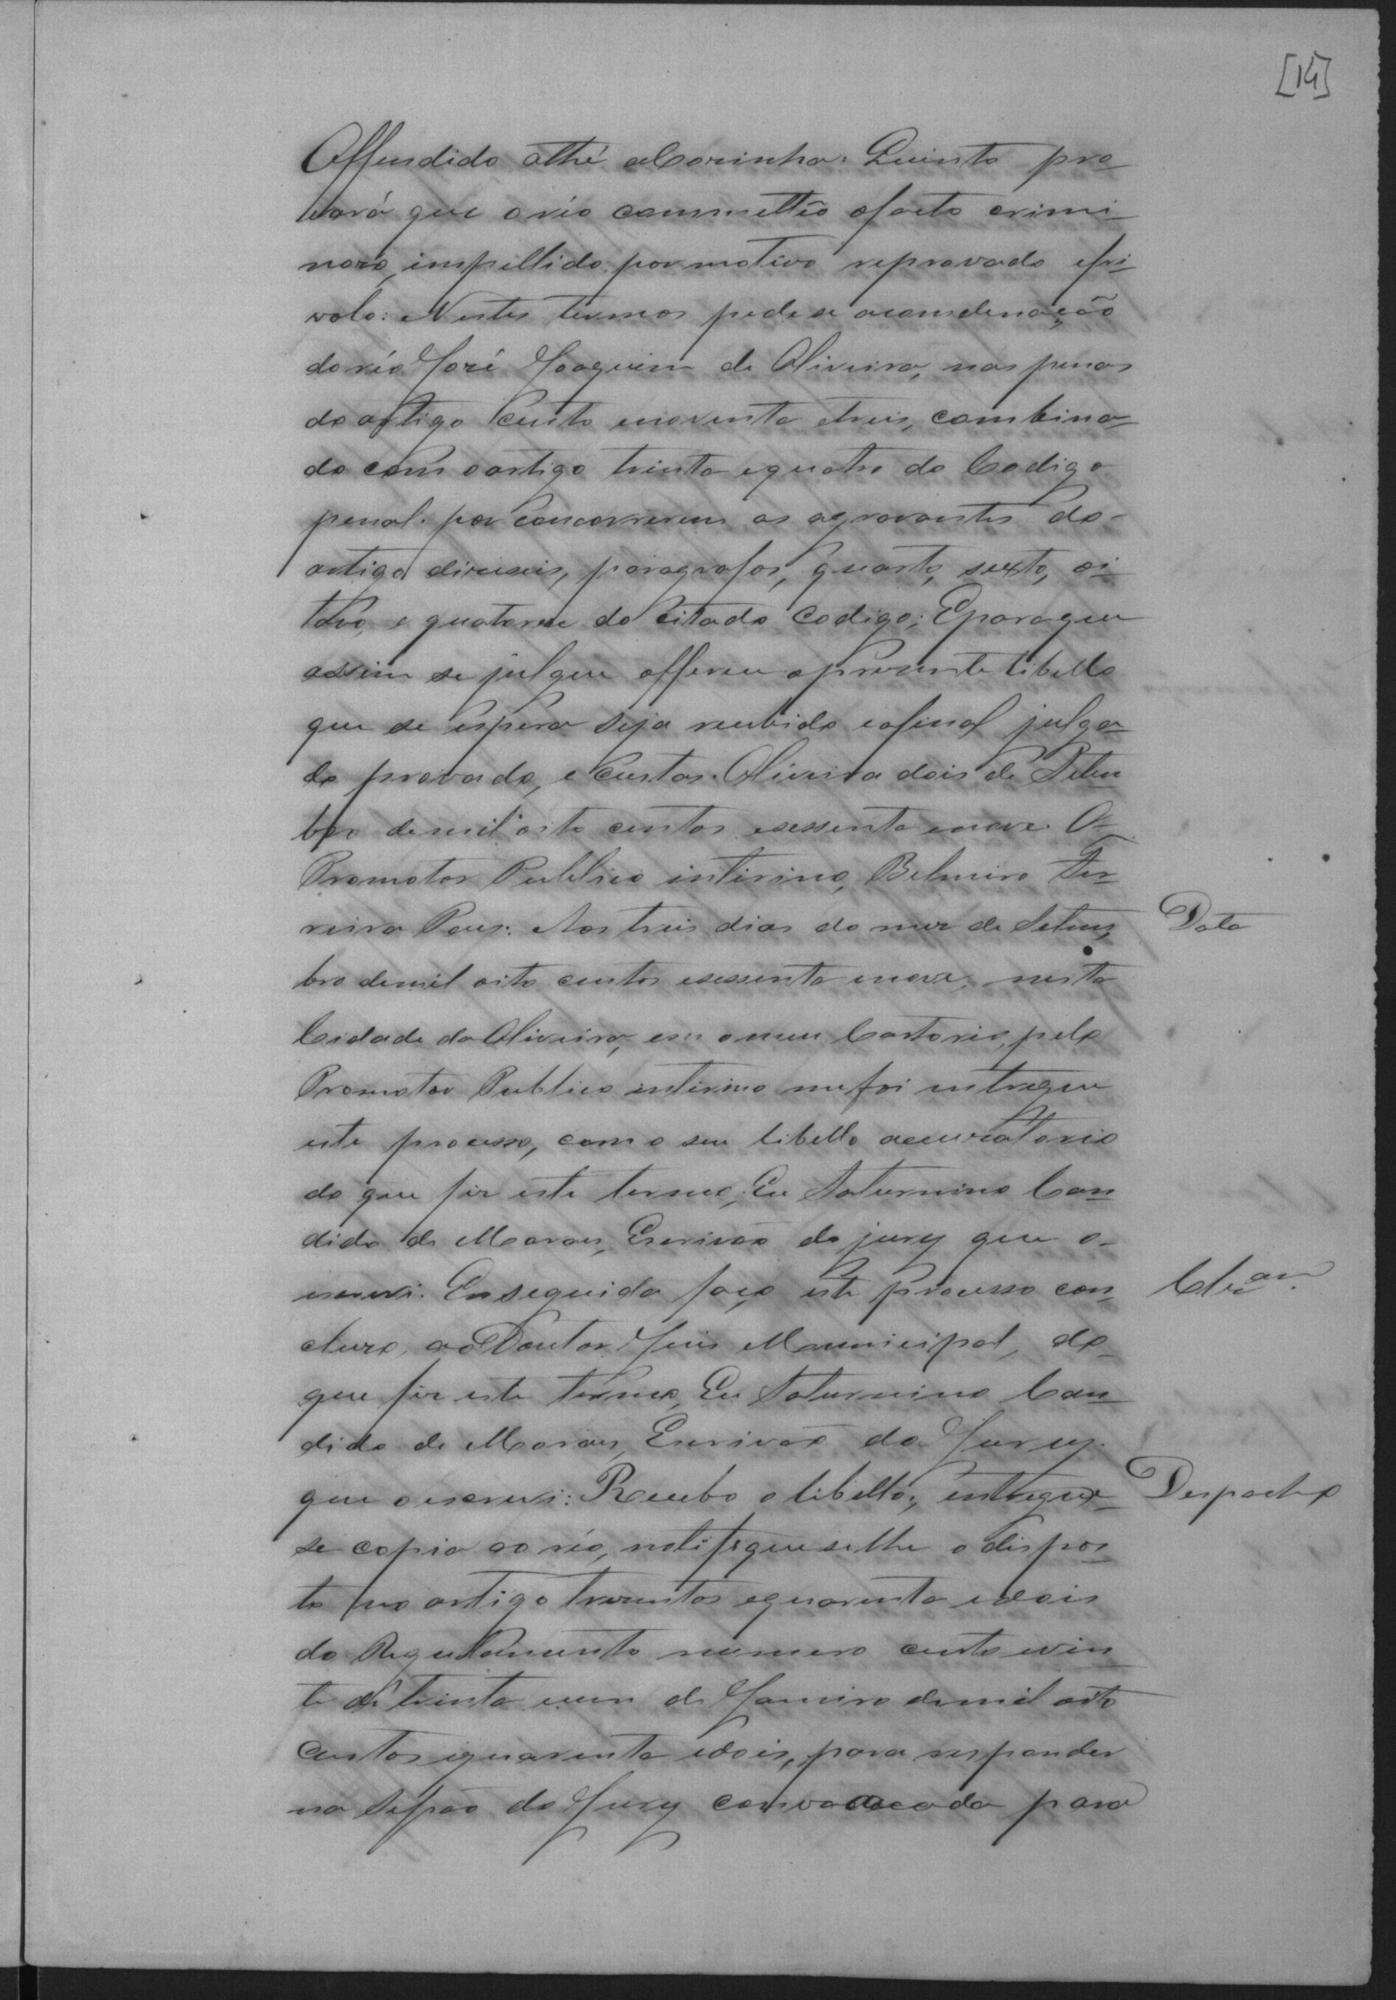 [14]
Offendido athé a Cosinha: Quinto pro-
vará que o réo commetteo o facto crimi-
noso, impellido por motivo reprovado e fri-
volo: Nestes termos pede se a condenação
do réo José Joaquim de Oliveira, nas penas
do artigo Cento e noventa e treis, combina-
do com o artigo trinta e quatro do Codigo
penal. por Concorrerem as agravantes do-
artigo diseseis, paragrafos, quarto, sexto, oi-
tavo, e quatorze do Citado Codigo; E para que
assim se julgue offerece o presente libello
que se espera seja recebido e afinal julga-
do provado, e Custas. Oliveira dois de Setem
bro de mil oito centos e sessenta e nove. O-
Promotor Publico intirino, Belmiro Fer-
reira Paes: Aos treis dias do mez de Setem-
Data
bro de mil oito centos e sessenta e nove, nesta
Cidade da Oliveira, em o meu Cartorio, pelo
Promotor Publico intirino me foi entregue
este processo, com o seu libello accusatorio
do que fiz este termo; Eu Saturnino Can-
dido de Moraes, Escrivão do jury que o-
escrevi. Em seguida faço este processo con-
Clzam.
cluzo, ao Doutor Juis Municipal, do-
que fiz este termo, Eu Saturnino Can-
dido de Moraes, Escrivão do Jury.
que o escrevi: Recebo o libello; entregue-
Despacho
se copia ao réo, notifique se lhe o dispos-
to no artigo trezentos e quarenta e dois
do Regulamento numero cento e vin-
te de trinta e um de Janeiro de mil oito
Centos e quarenta e dois, para responder
na Sessão do Jury convocada para